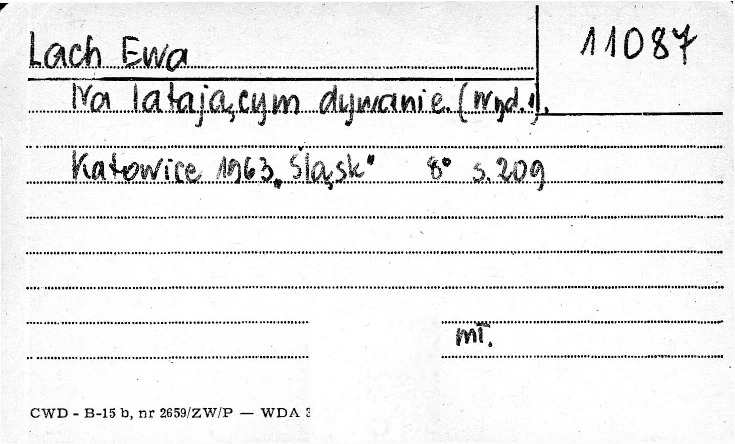 Lach Ewa
11087
Na latającym dywanie. (Wyd. 1).
Katowice 1963 „Śląsk" 8° s. 209
mł.
CWD - B-15 b, nr 2659/ZW/P — WDA